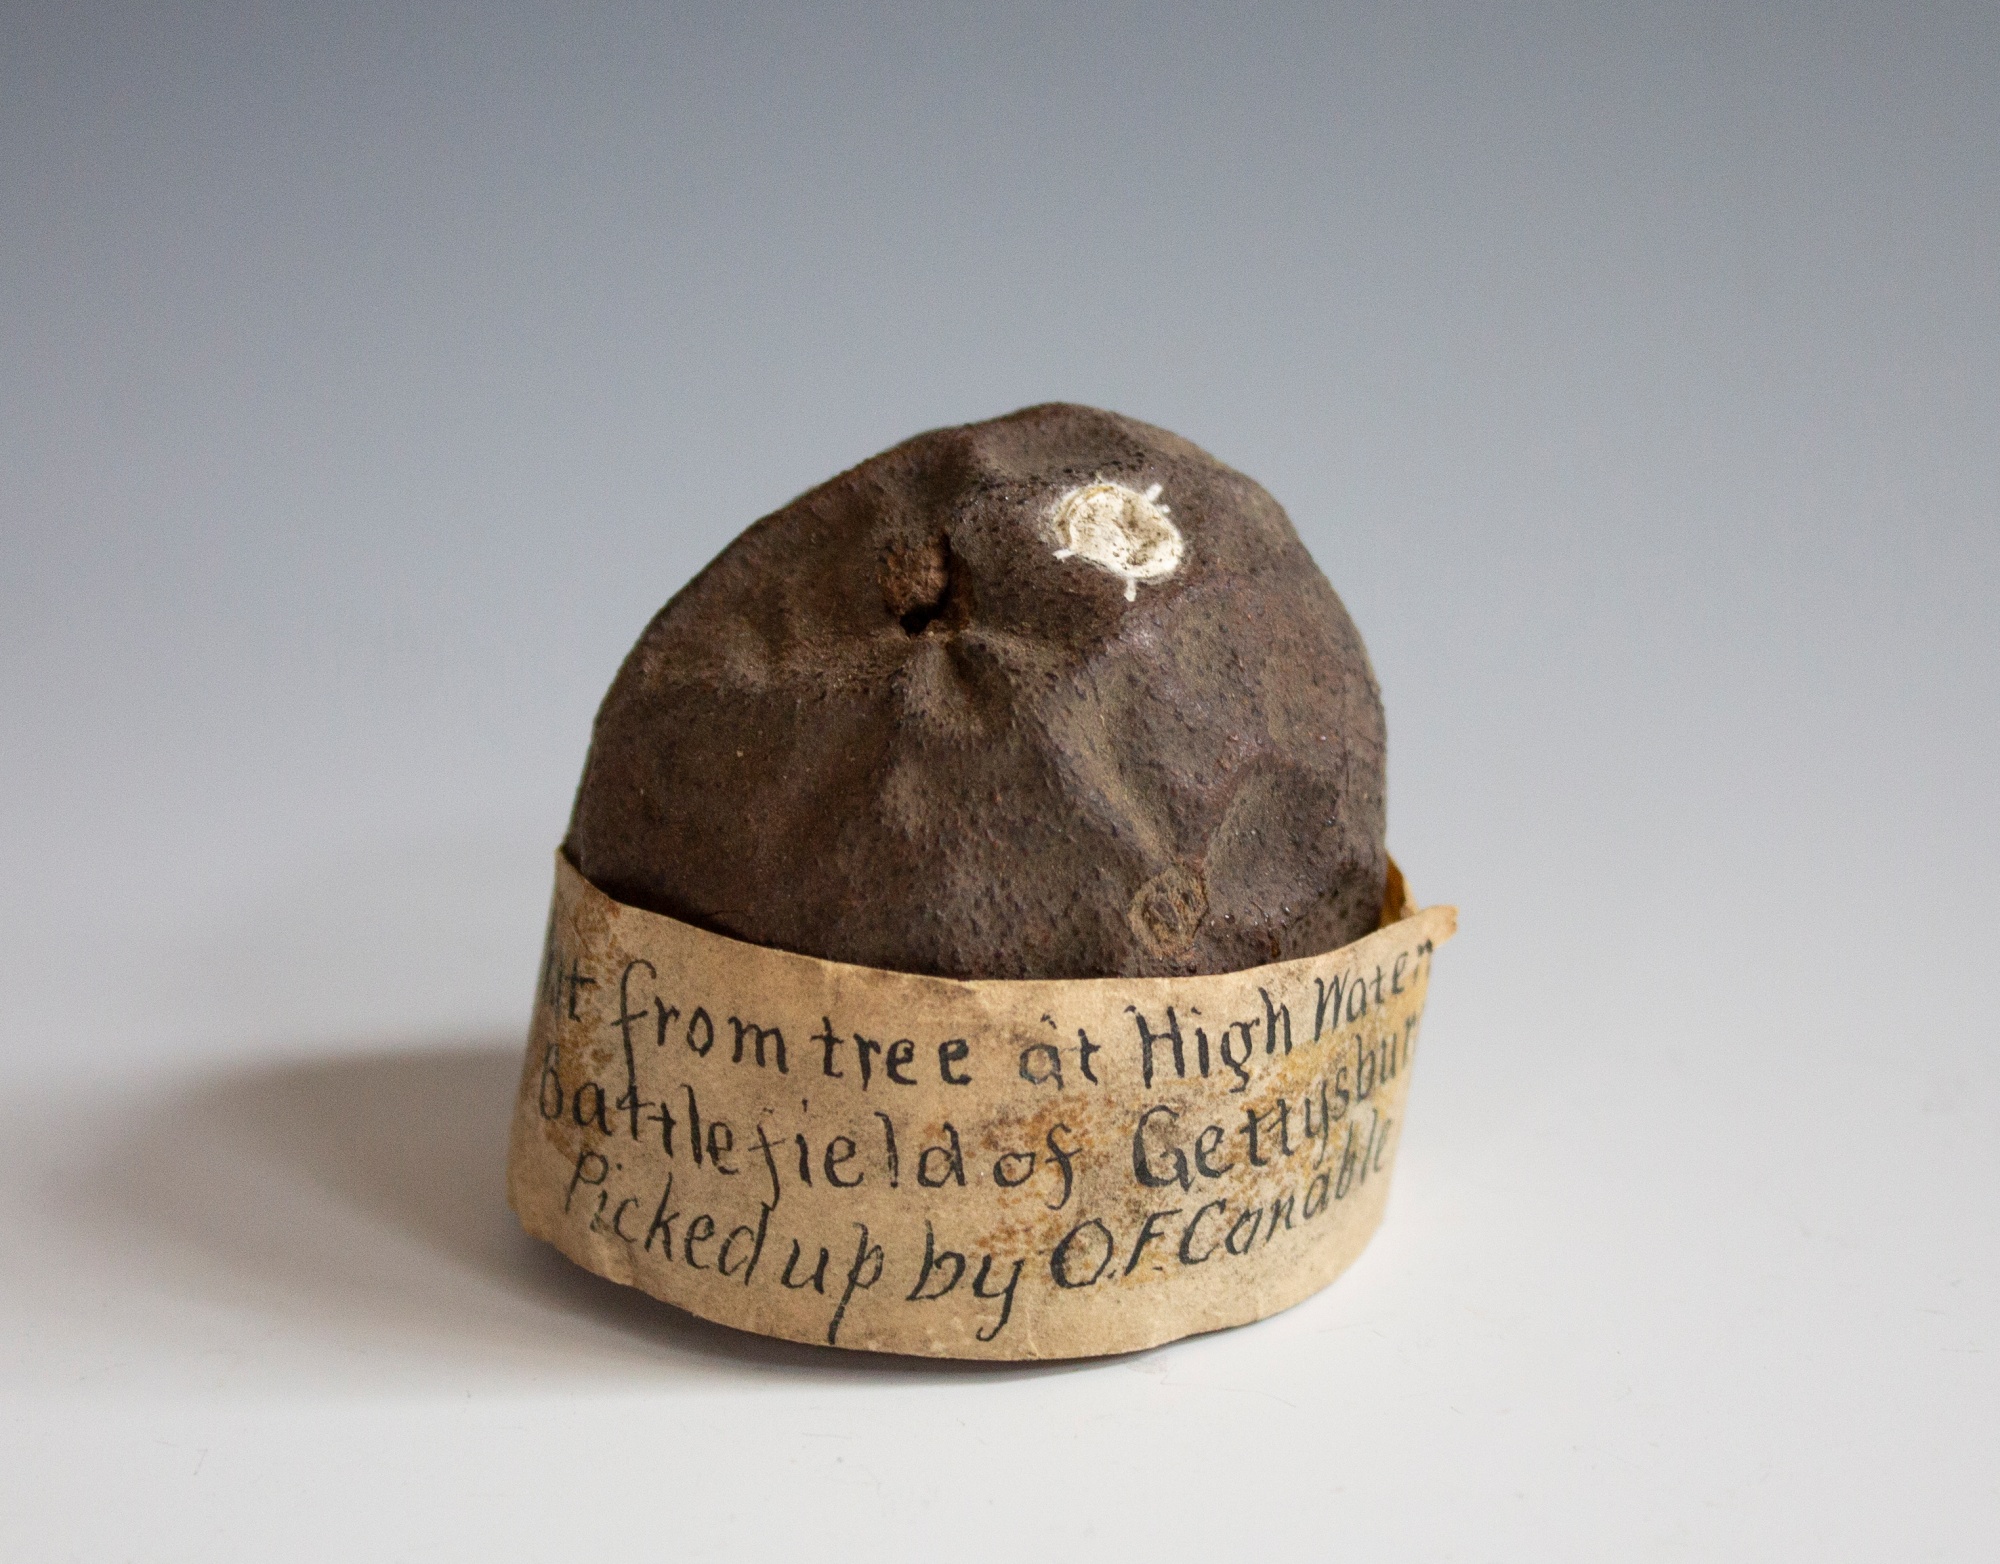 from tree at High Water
Battlefield of Gettysbur
Picked up by O.F. Conable